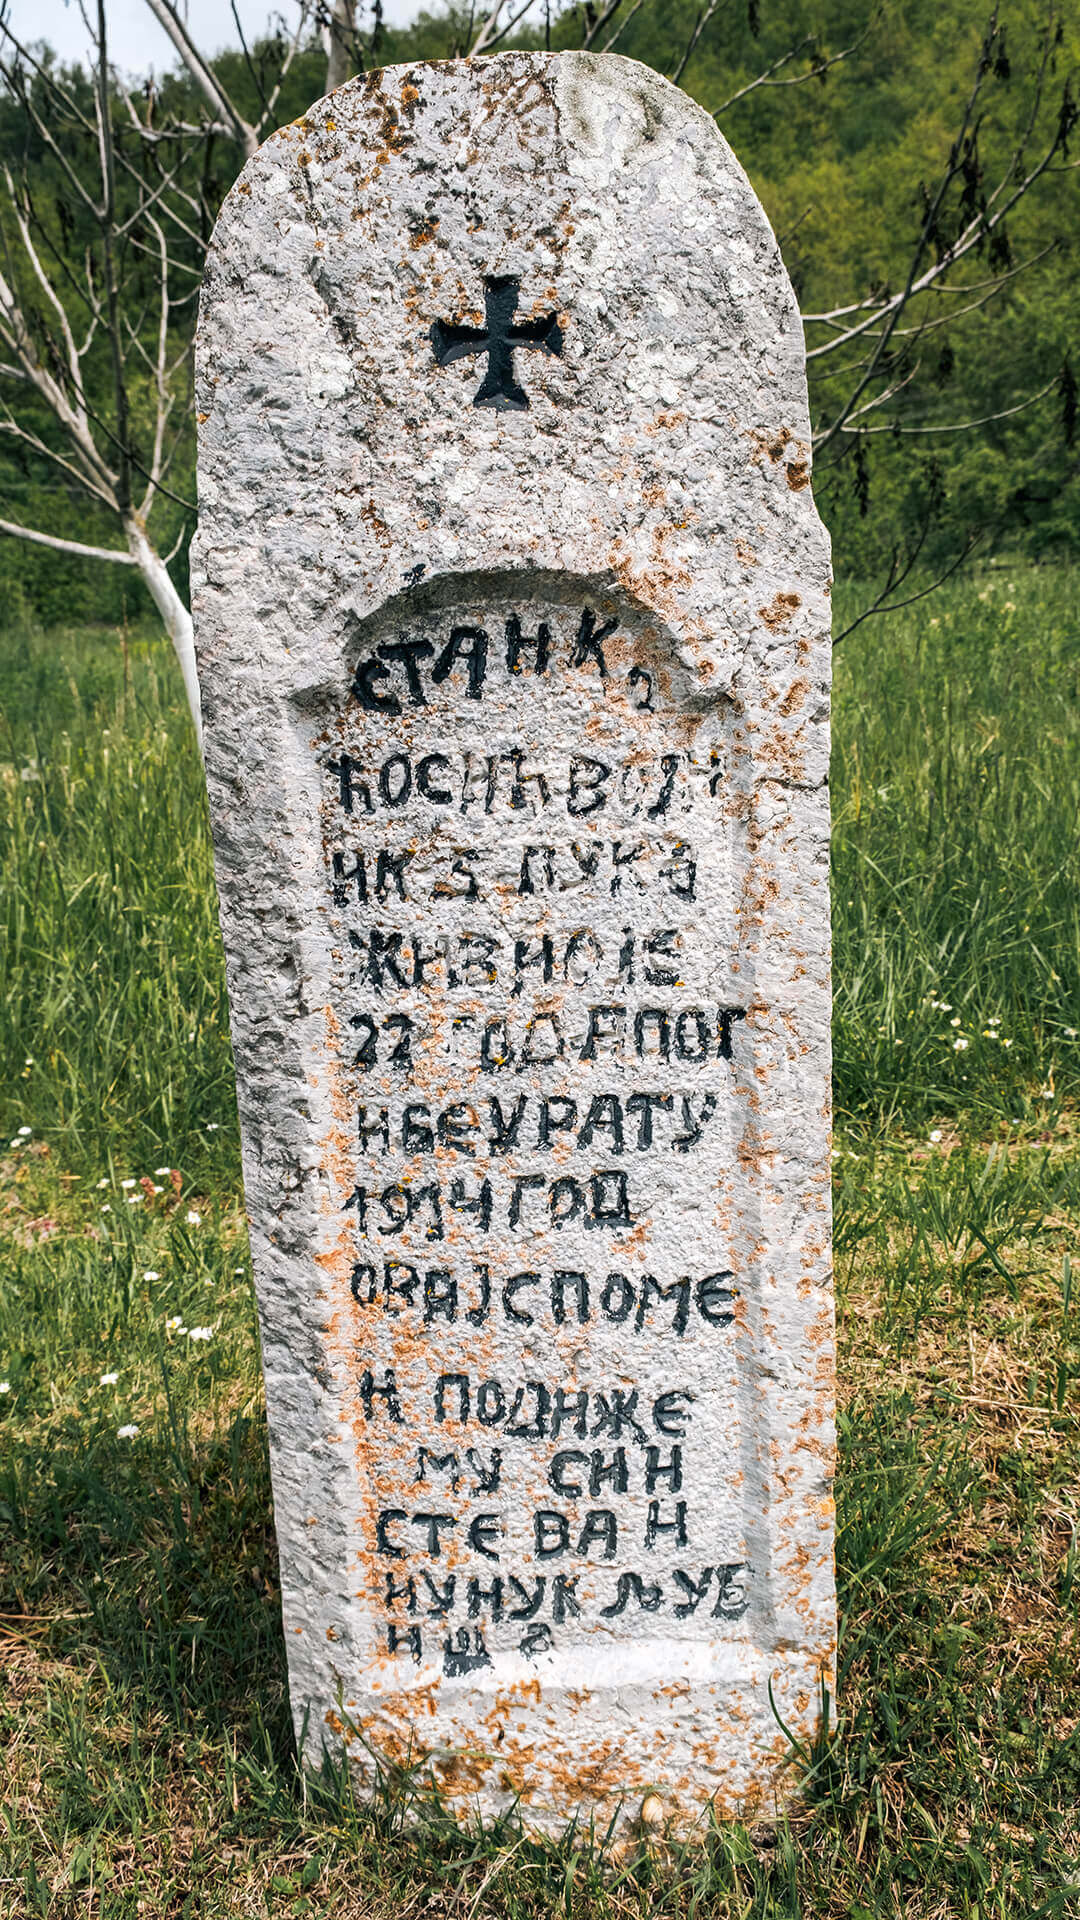 СТАНКО
ЋОСИЋ ВОЈН
ИК 5 ПУКА
ЖИВИО ЈЕ
22 ГОДА ПОГ
ИБЕ У РАТУ
1914 ГОД
ОВАЈ СПОМЕ
Н ПОДИЖЕ
МУ СИН
СТЕВАН
И УНУК ЉУБ
ИША